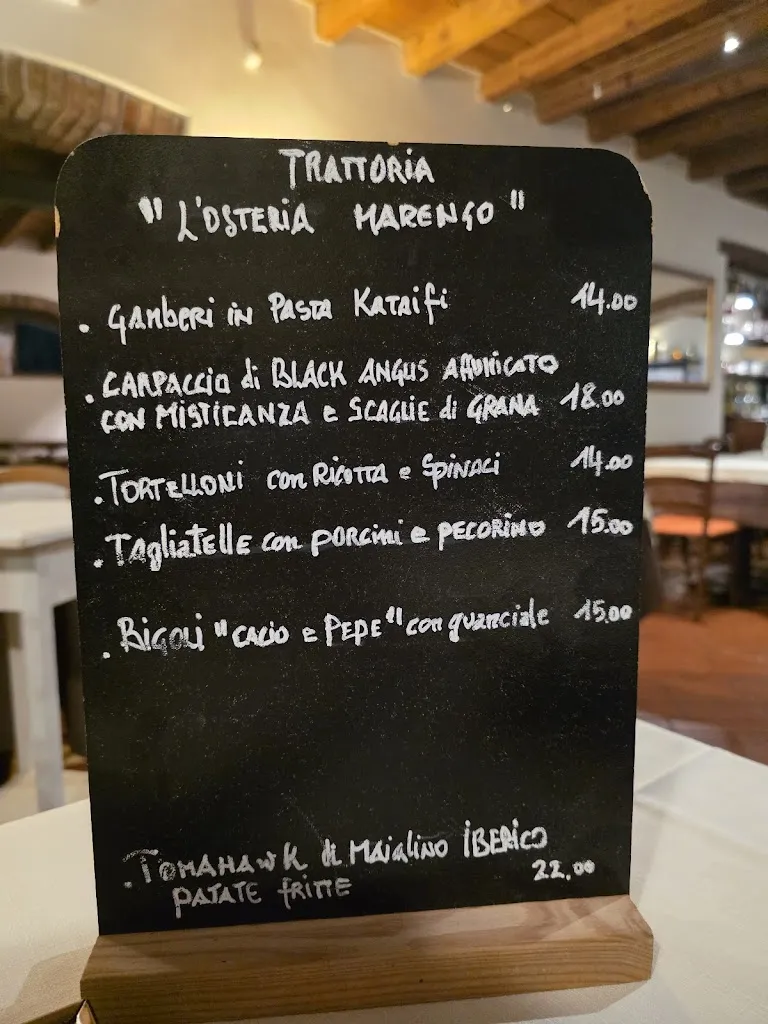 TRATTORIA
"L'OSTERIA MARENGO"
• GAMBERI iN PASTA KATAifi 14.00
• CARPACCIO di BLACK ANGUS AFFUMICATO
CON MISTICANZA e SCAGLIE di GRANA 18.00
• TORTELLONI con RICOTTA e SPINACI 14.00
• TAgliATElle con PORCini e PECORINO 15.00
• BIGOLI "CACIO e PEPE" con guanciale 15.00
• TOMAHAWK di MAiAliNO iBERiCO
PATATE fRiTTE 22.00